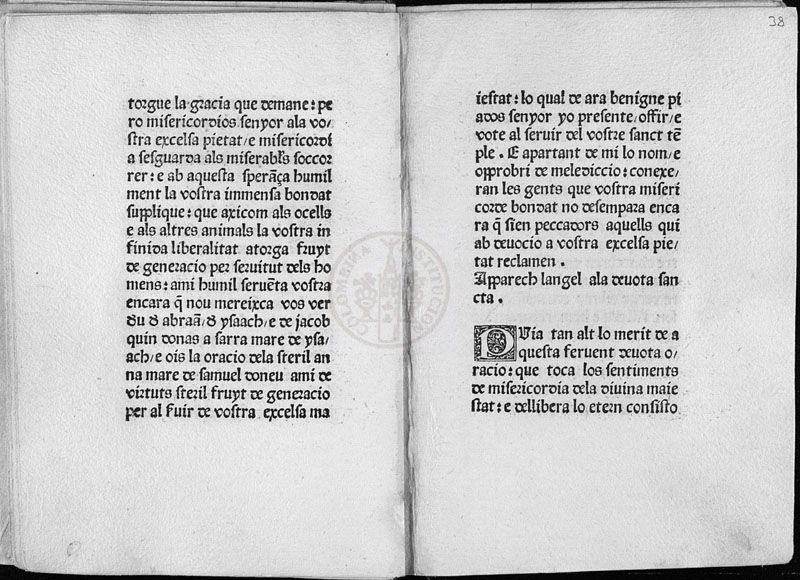 torgue la gracia que demane: pe
ro misericordios senyor ala vo/
stra excelsa pietat/e misericordi
a sesguarda als miserabłs soccor
rer: e ab aquesta sperāça humil
ment la vostra immensa bondat
supplique: que axicom als ocells
e als altres animals la vostra in
finida liberalitat atorga fruyt
de generacio per seruitut dels ho
mens: ami humil seruēta vostra
encara q̄ nou mereixca vos ver
de abraā/ ysaach/e de jacob
quin donas a sarra mare de ysa/
ach/e ois la oracio dela steril an
na mare de samuel doneu ami de
virtuts steril fruyt de generacio
per al de vostra excelsa ma
38
iestat: lo qual de ara benigne pi
ados senyor yo presente/offir/e
vote al seruir del vostre sanct tē
ple. E apartant de mi lo nom/e
opprobri de melediccio: conexe/
ran les gents que vostra miseri
corde bondat no desempara enca
ra q̄ sien peccadors aquells qui
ab deuocio a vostra excelsa pie/
tat reclamen.
Apparech langel ala deuota san
cta.
Uia tan alt lo merit de a
questa feruent deuota o/
racio: que toca los sentiments
de misericordia dela diuina maie
stat: e dellibera lo etern consisto
INSTITUCION COLOMBINA